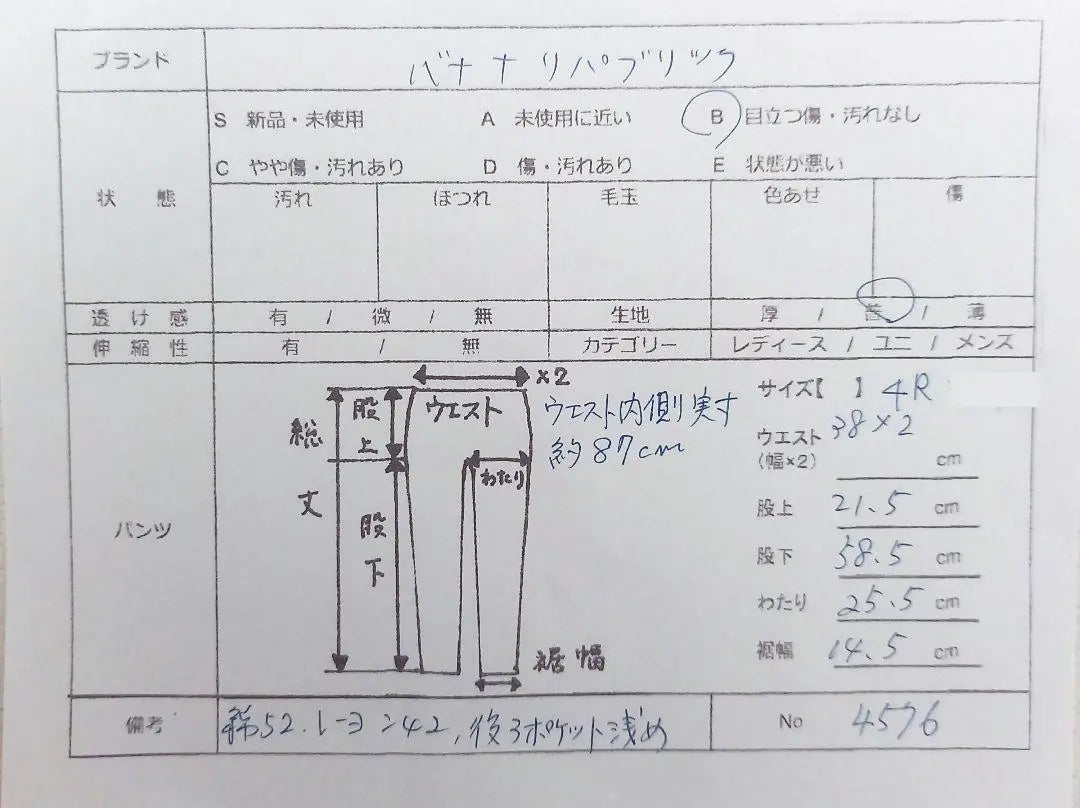 ブランド バナナリパブリック
S 新品・未使用 A 未使用に近い B 目立つ傷・汚れなし
C やや傷・汚れあり D 傷・汚れあり E 状態が悪い
状 態 汚れ ほつれ 毛玉 色あせ 傷
透 け 感 有 / 微 / 無 生地 厚 / 普 / 薄
伸 縮 性 有 / 無 カテゴリー レディース / ユニ / メンズ
パンツ
×2
ウエスト
股上
総丈
わたり
股下
裾幅
ウエスト内側実寸
約87cm
サイズ【 】 4R
ウエスト 38×2
(幅×2) cm
股上 21.5 cm
股下 58.5 cm
わたり 25.5 cm
裾幅 14.5 cm
備考 綿52.レーヨン42,後ろポケット浅め No 4576